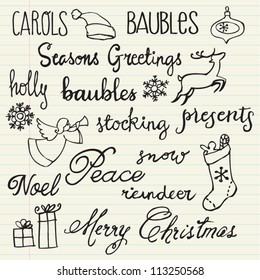 CAROLS BAUBLES
Seasons Greetings
holly baubles
stocking presents
snow
Noel Peace
reindeer
Merry Christmas
shutterstock
www.shutterstock.com · 113250568